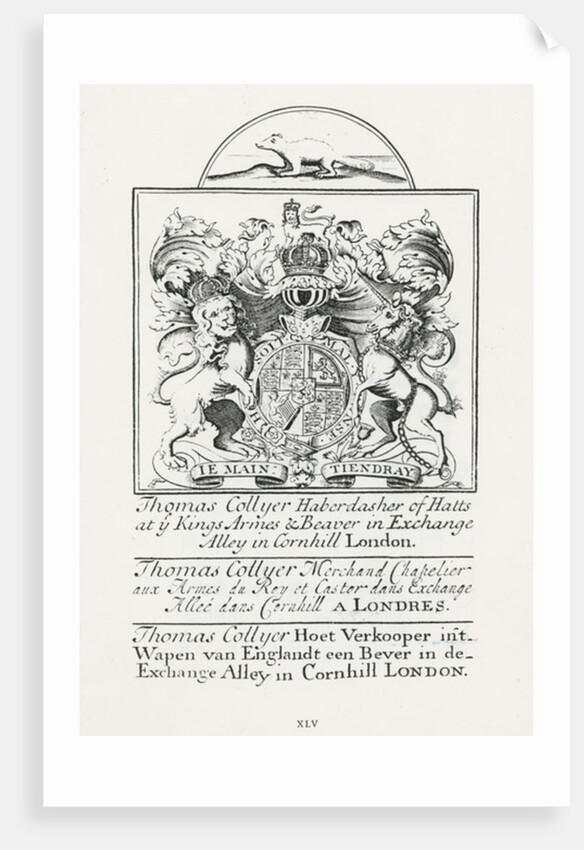 SOIT
MAL
Y PENSE
IE MAIN
TIENDRAY
Thomas Collyer Haberdasher of Hatts
at ẏ Kings Armes & Beaver in Exchange
Alley in Cornhill London.
Thomas Collyer Merchand Chapelier
aux Armes du Roy et Castor dans Exchange
Alleé dans Cornhill A LONDRES.
Thomas Collyer Hoet Verkooper in̂t
Wapen van Englandt een Bever in de
Exchange Alley in Cornhill LONDON.
XLV